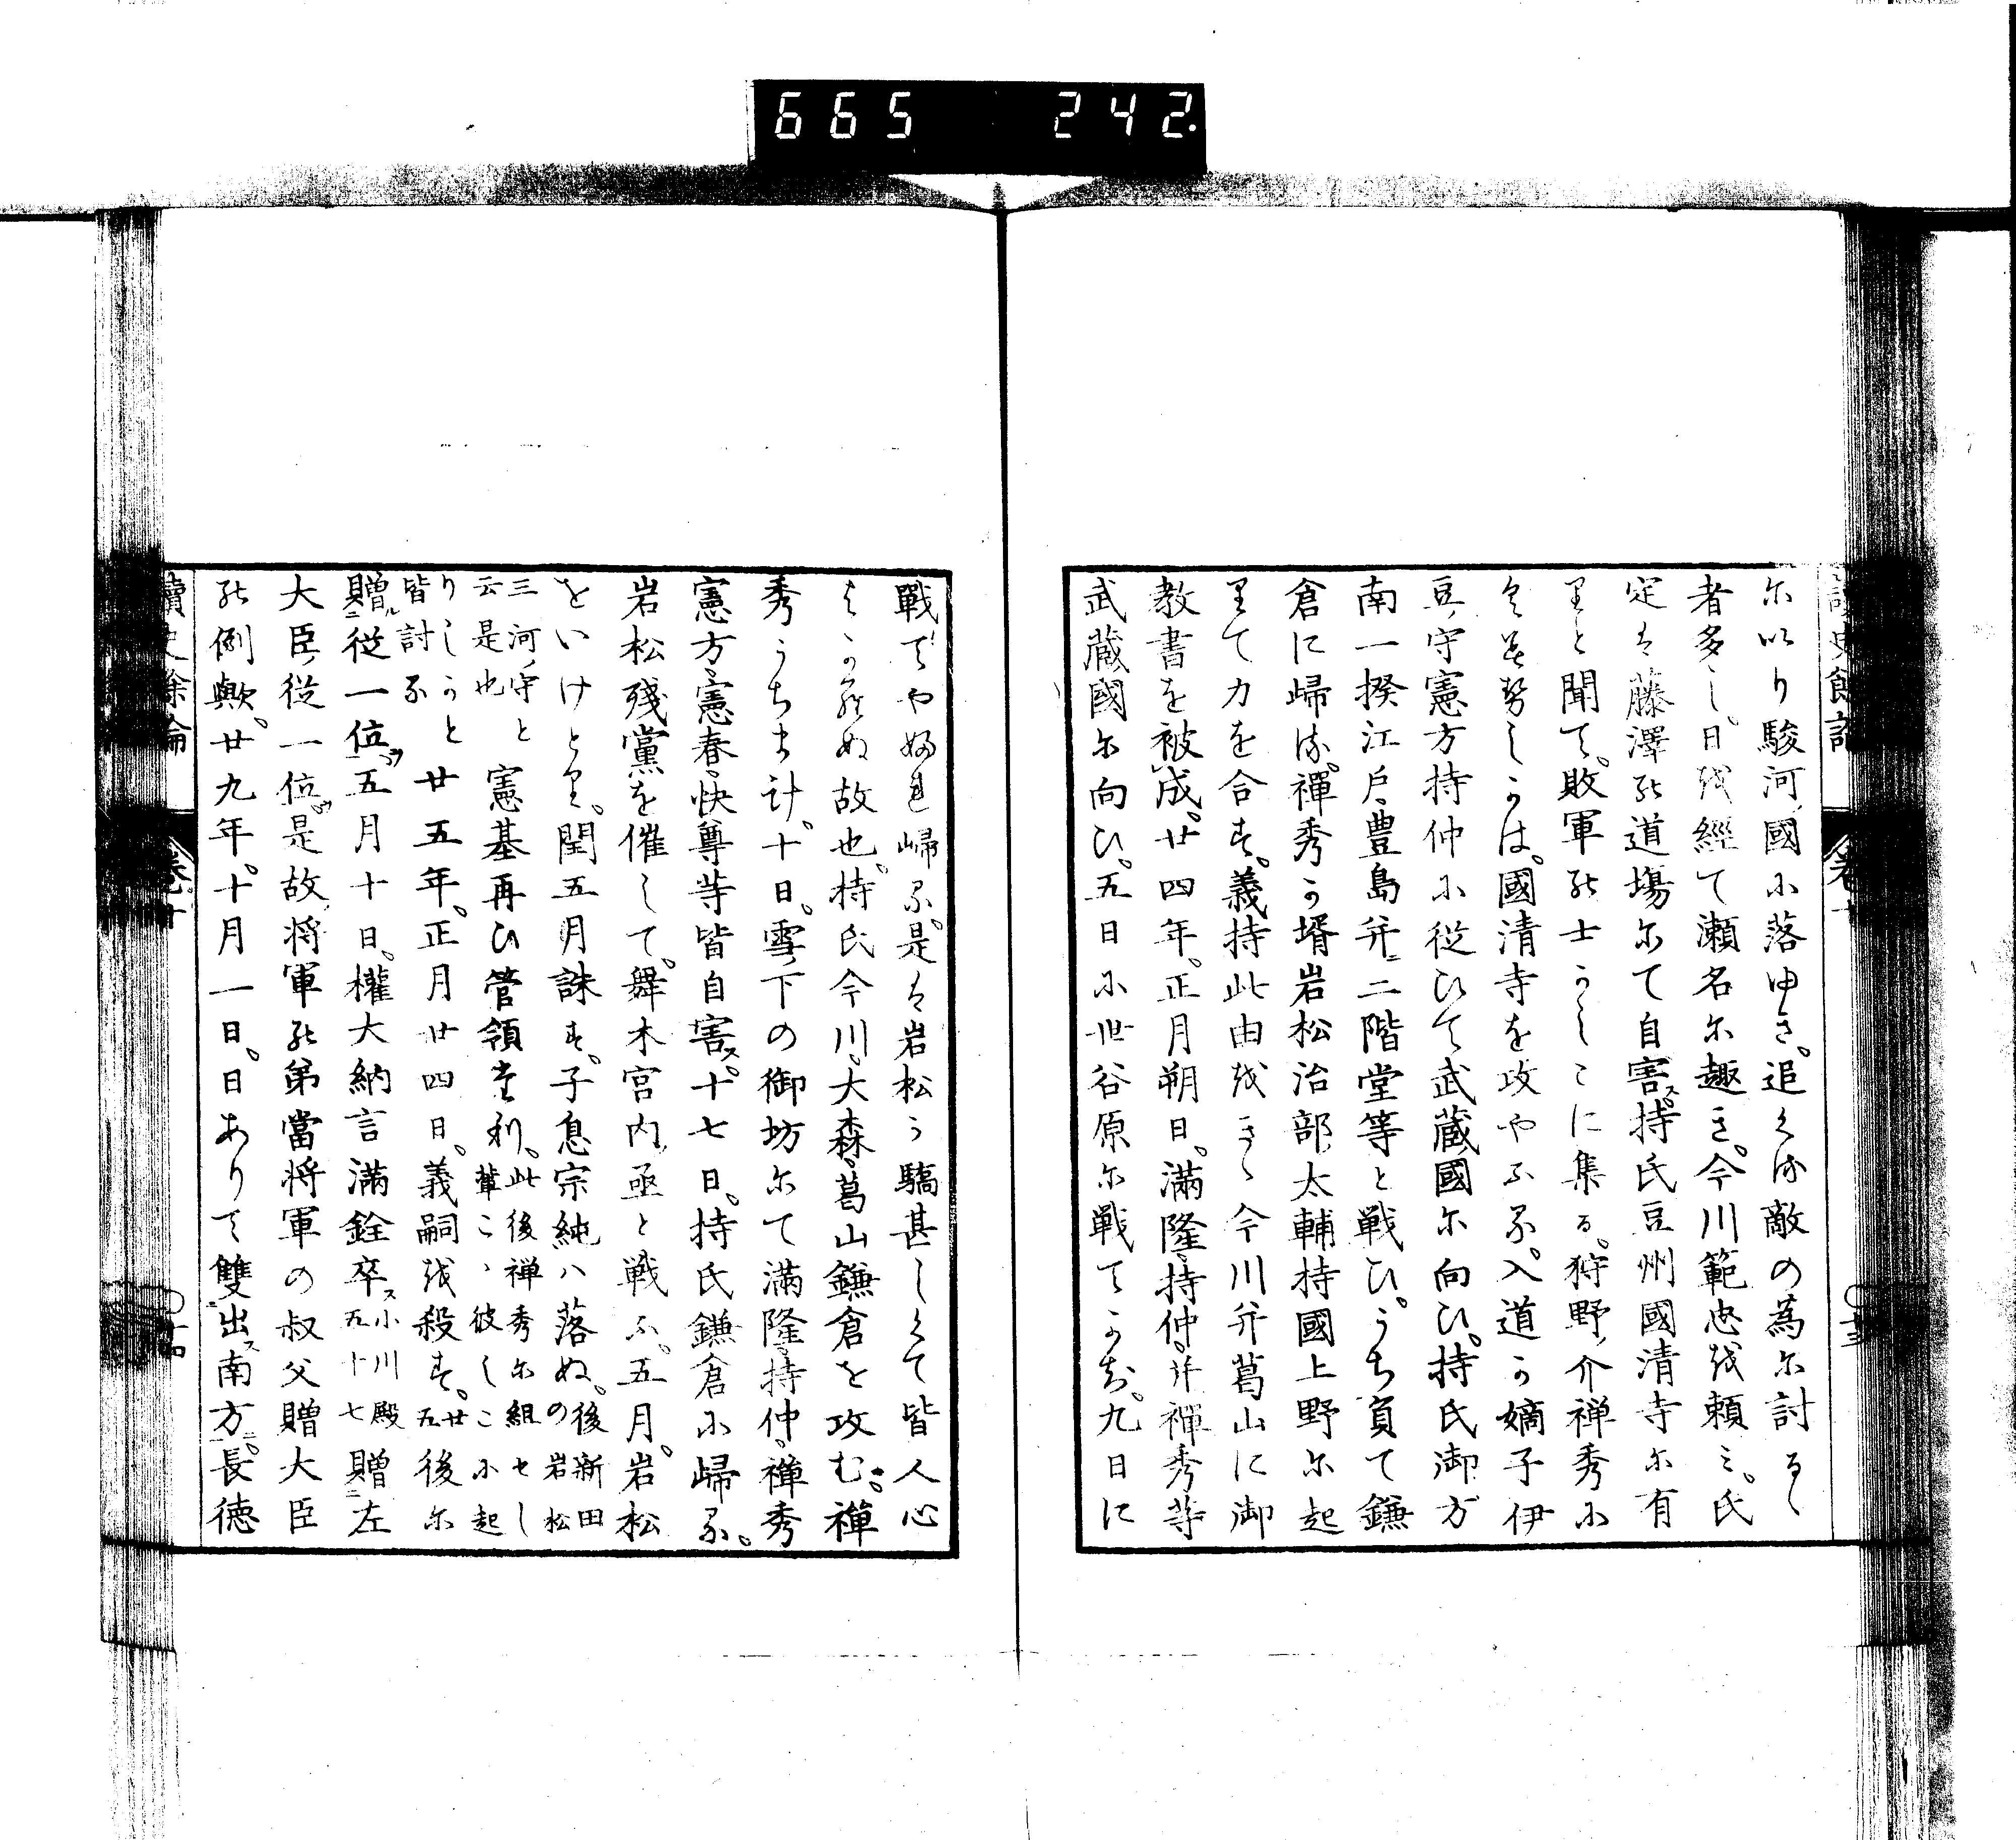 665 242.
尓以り駿河ノ國小落ゆき。追くる敵の為尓討るゝ
者多し。日越經て瀬名尓趣き。今川範忠越頼ミ。氏
定ハ藤澤能道塲尓て自害ス。持氏豆州國清寺尓有
里と聞て。敗軍能士うしこに集る。狩野ノ介禅秀小
无勢しうは。國清寺を攻やふる。入道う嫡子伊
豆ノ守憲方持仲小従ひて武蔵國尓向ひ。持氏御方
南一揆江戸豊島并ニ二階堂等と戦ひ。うち負て鎌
倉に歸る。禪秀う壻岩松治部ノ太輔持國上野尓起
里て力を合す。義持此由越きゝ今川并葛山に御
教書を被成。廿四年。正月朔日。満隆持仲并禪秀等
武蔵國尓向ひ。五日小世谷原尓戦てうち。九日に
戰てやぶれ歸る。是ハ岩松う驕甚しくて皆人心
よからぬ故也。持氏今川。大森。葛山鎌倉を攻む。禪
秀うちま計。十日。雪ノ下の御坊尓て満隆。持仲。禅秀
憲方。憲春。快尊等皆自害ス。十七日。持氏鎌倉小歸る。
岩松殘黨を催して。舞木宮内ノ亟と戦ふ。五月。岩松
をいけとる。閏五月誅す。子息宗純ハ落ぬ。後新田の岩松
三河ノ守と云是也 憲基再ひ管領たり。此後禅秀尓組せし輩こゝ彼しこ小起
りしうと皆討る 廿五年。正月廿四日。義嗣越殺す。廿五 後尓
贈ル従一位ヲ。五月十日。權大納言満銓卒ス小川殿五十七 贈ニ左
大臣ノ従一位ヲ。是故ノ将軍能弟當将軍の叔父贈大臣
能例歟。廿九年。十月一日。日ありて雙出ス南方ニ。長徳